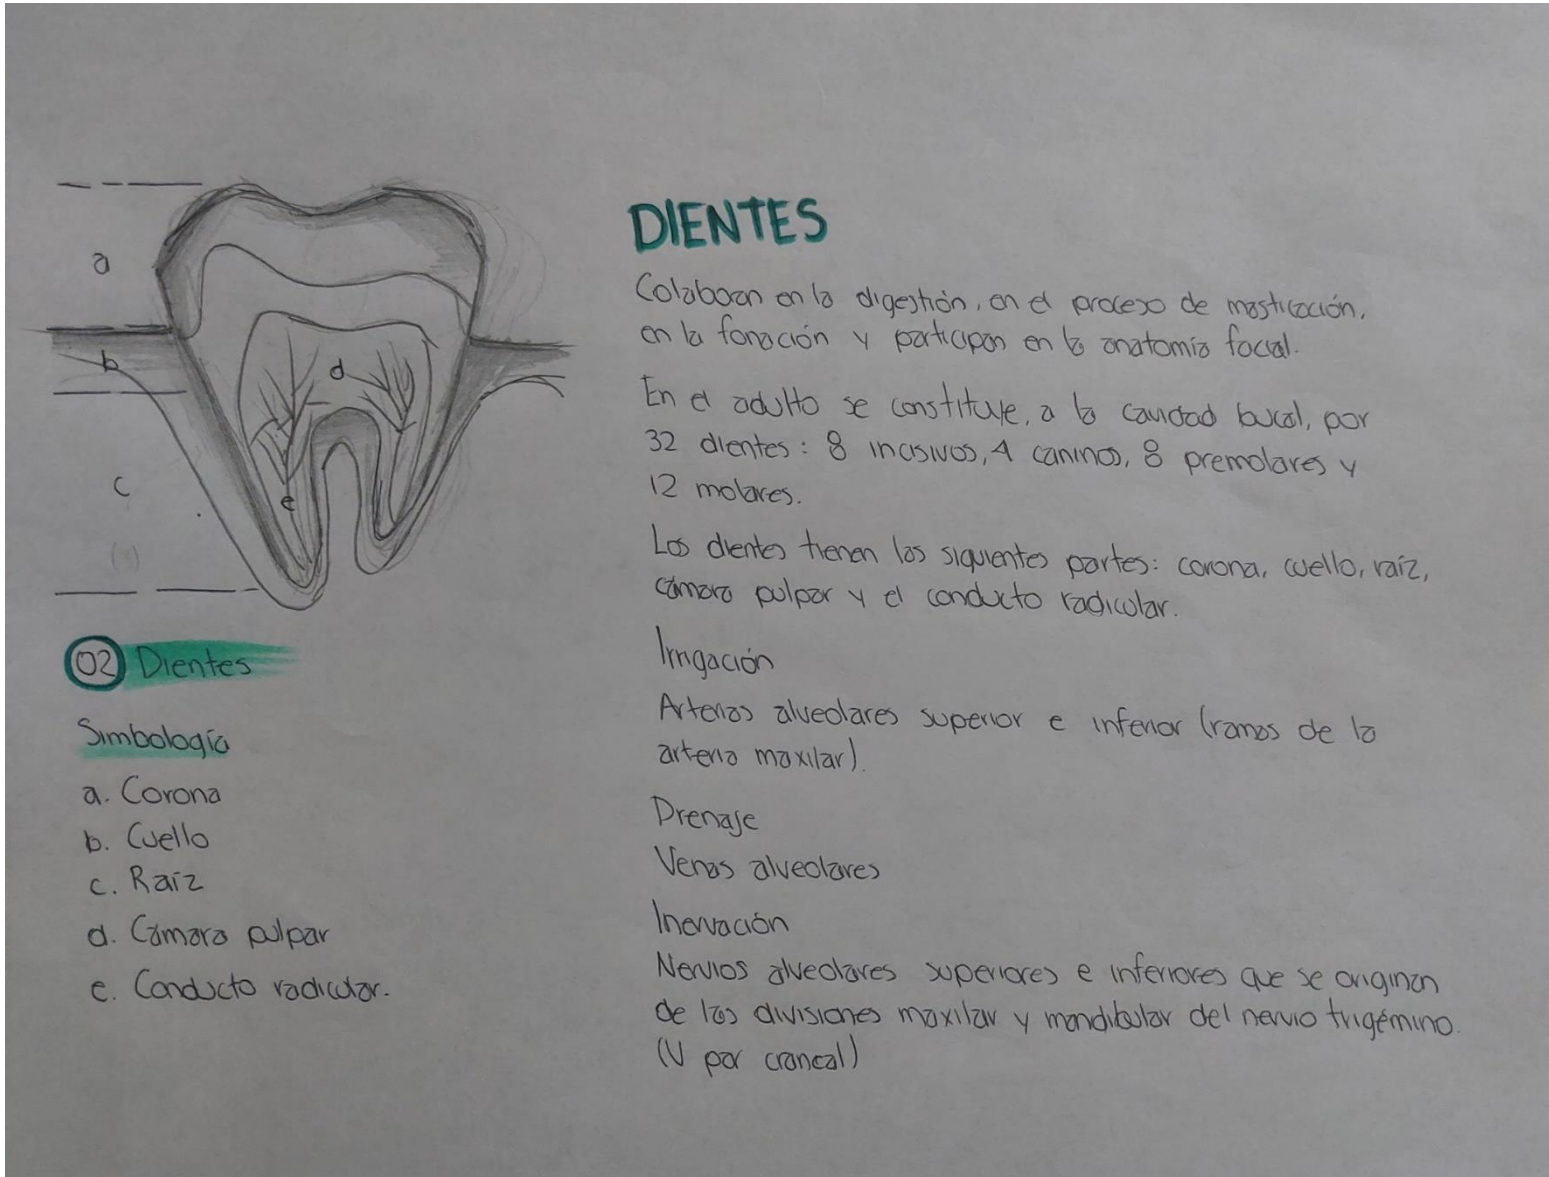 a
b
c
d
e
02 Dientes
Simbología
a. Corona
b. Cuello
c. Raíz
d. Cámara pulpar
e. Conducto radicular.
DIENTES
Colaboran en la digestión, en el proceso de masticación,
en la fonación y participan en la anatomía facial.
En el adulto se constituye, a la cavidad bucal, por
32 dientes: 8 incisivos, 4 caninos, 8 premolares y
12 molares.
Los dientes tienen las siguientes partes: corona, cuello, raíz,
cámara pulpar y el conducto radicular.
Irrigación
Arterias alveolares superior e inferior (ramas de la
arteria maxilar).
Drenaje
Venas alveolares
Inervación
Nervios alveolares superiores e inferiores que se originan
de las divisiones maxilar y mandibular del nervio trigémino.
(V par craneal)